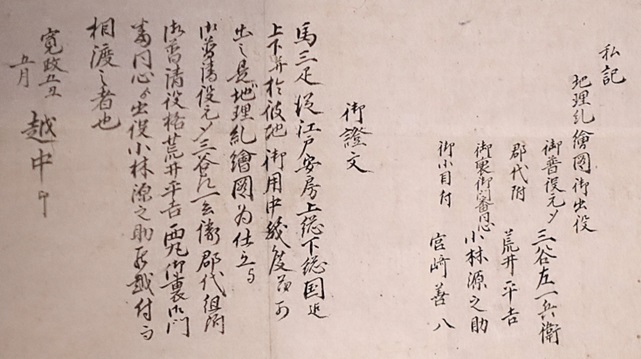 私記
地理糺繪圖御出役
御普請役元〆 三谷左一兵衛
郡代附 荒井平吉
御裏御門番同心 小林源之助
御小目付 宮崎善八
御證文
馬三疋従江戸安房上総下総国迄
上下并於彼地御用中幾度茂可
出之是地理糺繪圖為仕立
御普請役元〆三谷 郡代組附
御普請役格荒井平吉西丸御裏御門
番同心 出役小林源之助 付而
相渡之者也
寛政五丑
五月
越中